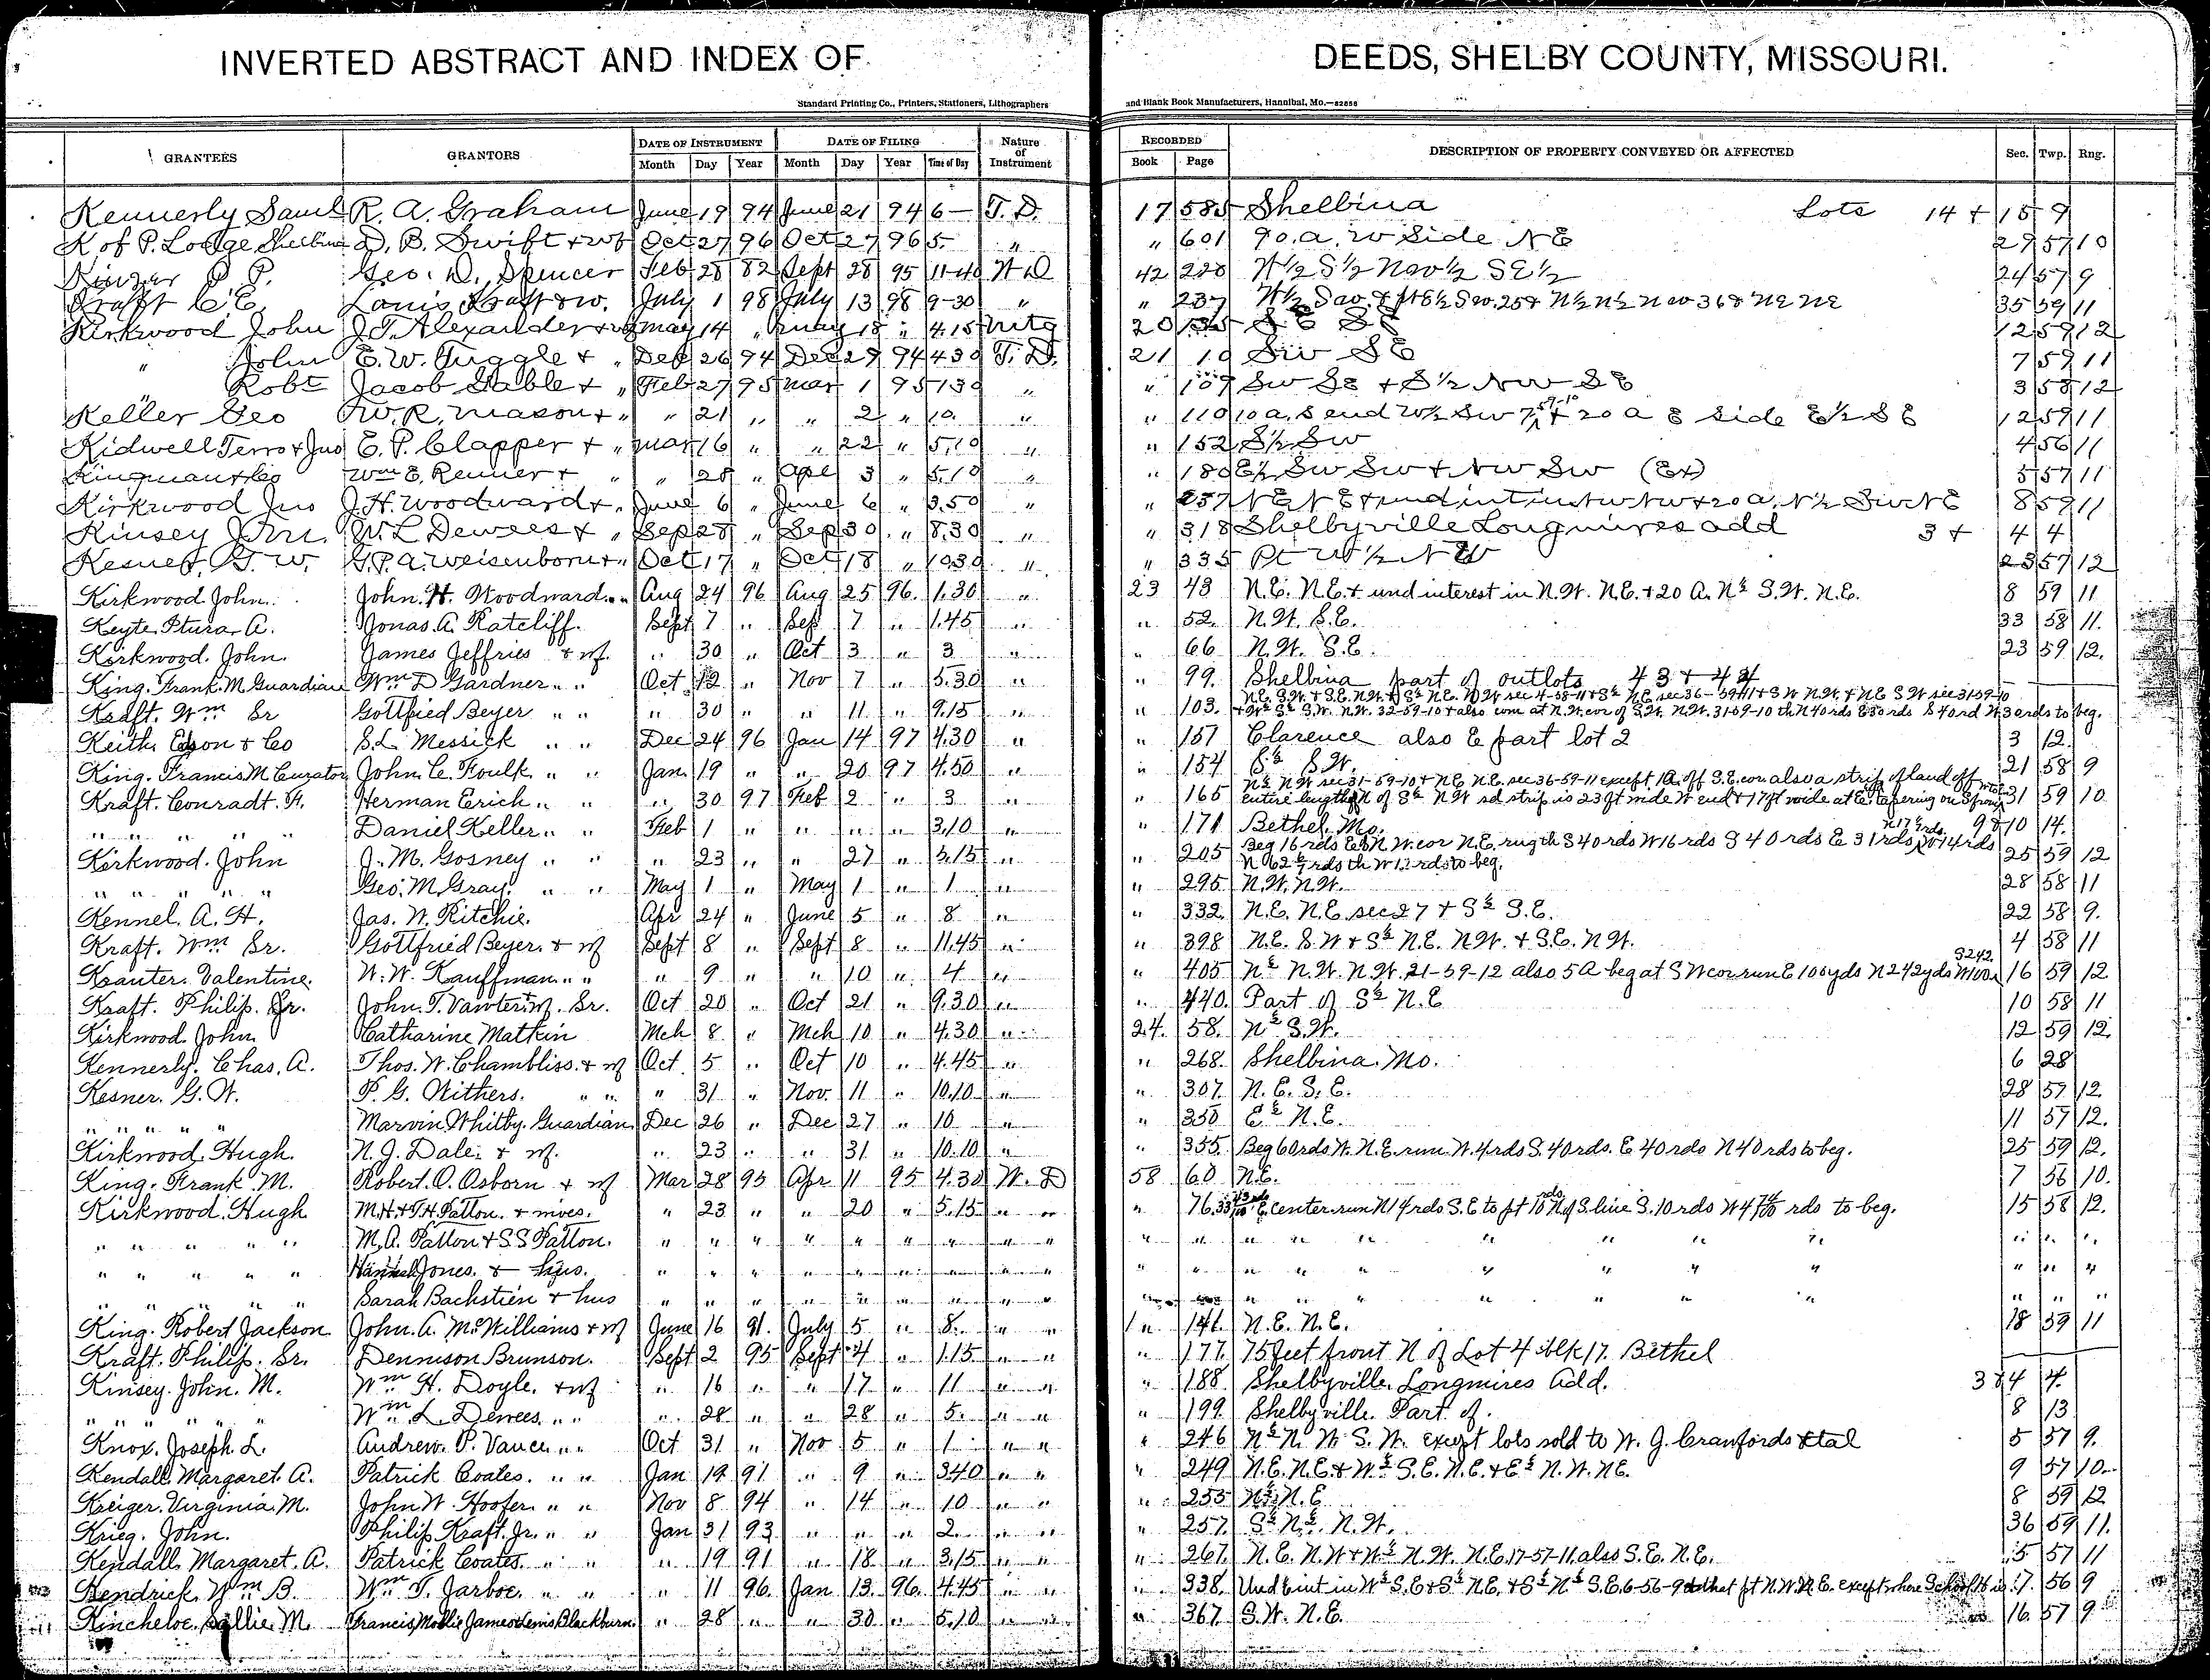 INVERTED ABSTRACT AND INDEX OF DEEDS, SHELBY COUNTY, MISSOURI.
Standard Printing Co., Printers, Stationers, Lithographers and Blank Book Manufacturers, Hannibal, Mo.—82656
GRANTEES GRANTORS DATE OF INSTRUMENT DATE OF FILING Nature of Instrument RECORDED DESCRIPTION OF PROPERTY CONVEYED OR AFFECTED Sec. Twp. Rng.
Month Day Year Month Day Year Time of Day Book Page
Kennerly Saml R. A. Graham June 19 94 June 21 94 6— T. D. 17 585 Shelbina Lots 14 + 15 9
K of P. Lodge Shelbina D. B. Swift + wf Oct 27 96 Oct 27 96 5- " " 601 90. a. W Side NE 29 57 10
Kinzer P. P. Geo. D. Spencer Feb 28 82 Sept 28 95 11-40 W D 42 228 24 57 9
Krafft C. E. Louis Kraft + w. July 1 98 July 13 98 9-30 " " 237 35 59 11
Kirkwood John J. T. Alexander + wf may 14 " may 18 " 4.15 Mtg 20 135 S E S E 12 59 12
" John E. W. Tuggle + " Dec 26 94 Dec 29 94 4 30 T. D. 21 10 SW SE 7 59 11
Robt Jacob Gable + " Feb 27 95 mar 1 95 1 30 " " 109 SW SE + S½ NW SE 3 58 12
Keller Geo W. R. Mason + " " 21 " " 2 " 10. " " 110 10 a. S end W½ SW 7 57-10 + 20 a E side E½ S E 12 59 11
Kidwell Terro + Jno E. P. Clapper + " mar 16 " " 22 " 5,10 " " 152 S½ SW 4 56 11
Kingman + Co Wm E. Renner + " " 28 " Apl 3 " 5,10 " " 180 E½ SW SW + NW SW (Ex) 5 57 11
Kirkwood Jno J. H. Woodward + " June 6 " June 6 " 3.50 " " 257 NE NE + und int in NW NW + 20 a. N½ SW NE 8 59 11
Kinsey John. W. L Dewees + " Sep 28 " Sep 30 " 8.30 " " 318 Shelbyville Longmires add 3 + 4 4
Kesner. G. W. G. P. A. Weisenborn + " Oct 17 " Oct 18 " 10 30 " " 335 Pt W ½ N W 23 57 12
Kirkwood. John. John. H. Woodward. " " Aug 24 96 Aug 25 96. 1.30 " 23 43 N.E. N.E. + und interest in N.W. N.E. + 20 A. N½ S.W. N.E. 8 59 11
Keyte. Ptura. A. Jonas. A. Ratcliff. Sept 7 " Sep 7 " 1.45 " " 52. N.W. S.E. 33 58 11.
Kirkwood. John. James Jeffries + wf. " 30 " Oct 3 " 3 " " 66 N.W. S.E. 23 59 12.
King. Frank. M Guardian Wm D Gardner " " Oct 12 " Nov 7 " 5.30 " " 99. Shelbina part of outlots 43 + 44
Kraft. Wm Sr Gottfried Beyer " " " 30 " " 11 " 9.15 " " 103. N.E. S.W. + S.E. N.W. + S½ N.E. N W sec 4-58-11 + S½ N.E. sec 36-59-11 + S W N.W. + N E S W sec 31-59-10
+ W½ S½ S.W. N.W. 32-59-10 + also com at N.W. cor of S.W. N.W. 31-59-10 th N 40 rds E 30 rds S 40 rd W 30 rds to beg.
Keith, Edson + Co S. L. Messick " " Dec 24 96 Jan 14 97 4.30 " " 151 Clarence also E part lot 2 3 12.
King. Francis M Curator John. C. Foulk. " " Jan. 19 " " 20 97 4.50 " " 154 S½ S.W. 21 58 9
Kraft. Conradt. H. Herman Erich " " " 30 97 Feb 2 " 3 " " 165 N½ N.W sec 31-59-10 + N.E. N.E. sec 36-59-11 except 1 A. off S.E. cor also a strip of land off
entire length N of S½ N W sd strip is 23 ft wide W end + 17 ft wide at E. tapering 31 59 10
" " " " Daniel Keller " " Feb 1 " " " " 3,10 " " 171 Bethel, Mo. 9 & 10 14.
Kirkwood. John J. M. Gosney " " " 23 " " 27 " 3.15 " " 205 Beg 16 rds E of N W. cor N.E. rung th S 40 rds W 16 rds S 40 rds E 31 rds 25 59 12
N 62 rds th W 12 rds to beg.
" " " " Geo. M. Gray. " " May 1 " May 1 " 1 " " 295 N.W. N.W. 28 58 11
Kennel. A. H. Jas. W. Ritchie. Apr 24 " June 5 " 8 " " 332. N.E. N.E. sec 27 + S½ S.E. 22 58 9.
Kraft. Wm Sr. Gottfried Beyer. + wf Sept 8 " Sept 8 " 11.45 " " 398 N.E. S.W + S½ N.E. N W. + S.E. N W. 4 58 11
Kranter. Valentine. W. W. Kauffman " " " 9 " " 10 " 4 " " 405 N½ N.W. N.W. 21-59-12 also 5 A beg at S W cor run E 100 yds N 242 yds W 100 S 242 16 59 12
Kraft. Philip. Jr. John. T. Vawter. wf. Sr. Oct 20 " Oct 21 " 9.30 " " 440. Part of S½ N.E 10 58 11
Kirkwood. John. Catharine Matkin Mch 8 " Mch 10 " 4.30 " 24. 58. N½ S.W. 12 59 12.
Kennerly. Chas. A. Thos. W. Chambliss. + wf Oct. 5 " Oct 10 " 4.45 " " 268. Shelbina. Mo. 6 28
Kesner. G. W. P. G. Withers. " " " 31 " Nov. 11 " 10.10 " " 307. N. E. S. E. 28 57 12.
" " " " " Marvin Whitby. Guardian Dec 26 " Dec 27 " 10 " " 350 E½ N.E. 11 57 12.
Kirkwood. Hugh. N. J. Dale. + wf. " 23 " " 31. " 10.10 " " 355. Beg 60 rds W. N.E. run W. 4 rds S. 40 rds. E 40 rds N 40 rds to beg. 25 59 12.
King. Frank. M. Robert. O. Osborn + wf Mar 28 95 Apr 11 95 4.30 W. D 58 60 N.E. 7 56 10.
Kirkwood. Hugh M. H. + T. H. Patton. + wives. " 23 " " 20 " 5.15 " " " 76. center run N 14 rds S. E to pt 10 rds N of S. line S. 10 rds W rds to beg. 15 58 12.
" " " " " M. A. Patton + S S Patton. " " " " " " " " " " " " " " " " " " " " "
" " " " " Hannah Jones. + hus. " " " " " " " " " " " " " " " " " " " "
" " " " " Sarah Bachstien + hus " " " " " " " " " " " " " " " " " " "
King. Robert Jackson. John. A. McWilliams + wf June 16 91. July 5 " 8. " " " 141. N. E. N. E. 18 59 11
Kraft. Philip. Sr. Dennison Brunson. Sept 2 95 Sept 4 " 1.15 " " " 177. 75 feet front N of Lot 4 blk 17. Bethel
Kinsey. John. M. Wm H. Doyle. + wf " 16 " " 17 " 11 " " " 188. Shelbyville. Longmires Add. 3 & 4 4.
" " " " " Wm L. Dewees. " " " 28 " " 28 " 5. " " " 199. Shelbyville. Part. of. 8 13
Knox. Joseph. L. Andrew. P. Vance " " Oct 31 " Nov 5 " 1 " " " 246 N½ N. W. S. W. except lots sold to W. J. Crawfords et al 5 57 9.
Kendall. Margaret. A. Patrick Coates. " " Jan 19 91 " 9 " 3.40 " " " 249. N.E. N.E. + W½ S.E. N.E. + E½ N.W. N.E. 9 57 10.
Kreiger. Virginia. M. John W. Hoofer. " " Nov 8 94 " 14 " 10 " " " 255 N½ N.E 8 59 12
Krieg. John. Philip Kraft. Jr. " " Jan 31 93 " " " 2. " " " 257. S½ N½. N.W. 36 59 11.
Kendall. Margaret. A. Patrick Coates. " " " 19 91 " 18 " 3.15 " " " 267. N. E. N.W + W½ N.W. N.E. 17-57-11. also S. E. N. E. 5 57 11
Kendrick. Wm B. Wm T. Jarboe. " " " 11 96. Jan 13. 96. 4.45 " " " 338. Und int in W½ S.E + S½ N.E. + S½ N½ S.E. 6-56-9 that pt N.W. N.E. except where School H is. 7. 56 9
Kincheloe. Sallie. M. Francis, Mollie James & Lewis Blackburn. " 28 " " 30 " 5.10 " " " 367. S.W. N.E. 16. 57 9